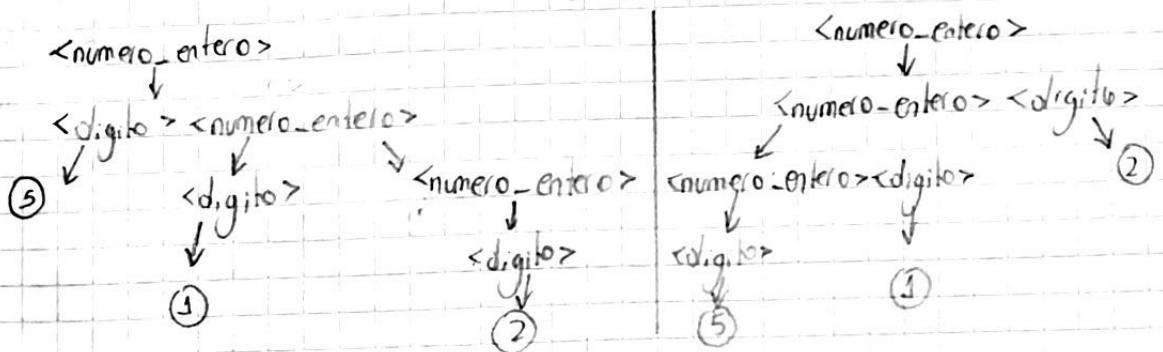 <numero_entero>
<digito> <numero_entero>
5
<digito> <numero_entero>
1
<digito>
2
<numero_entero>
<numero_entero> <digito>
2
<numero_entero><digito>
<digito>
1
5